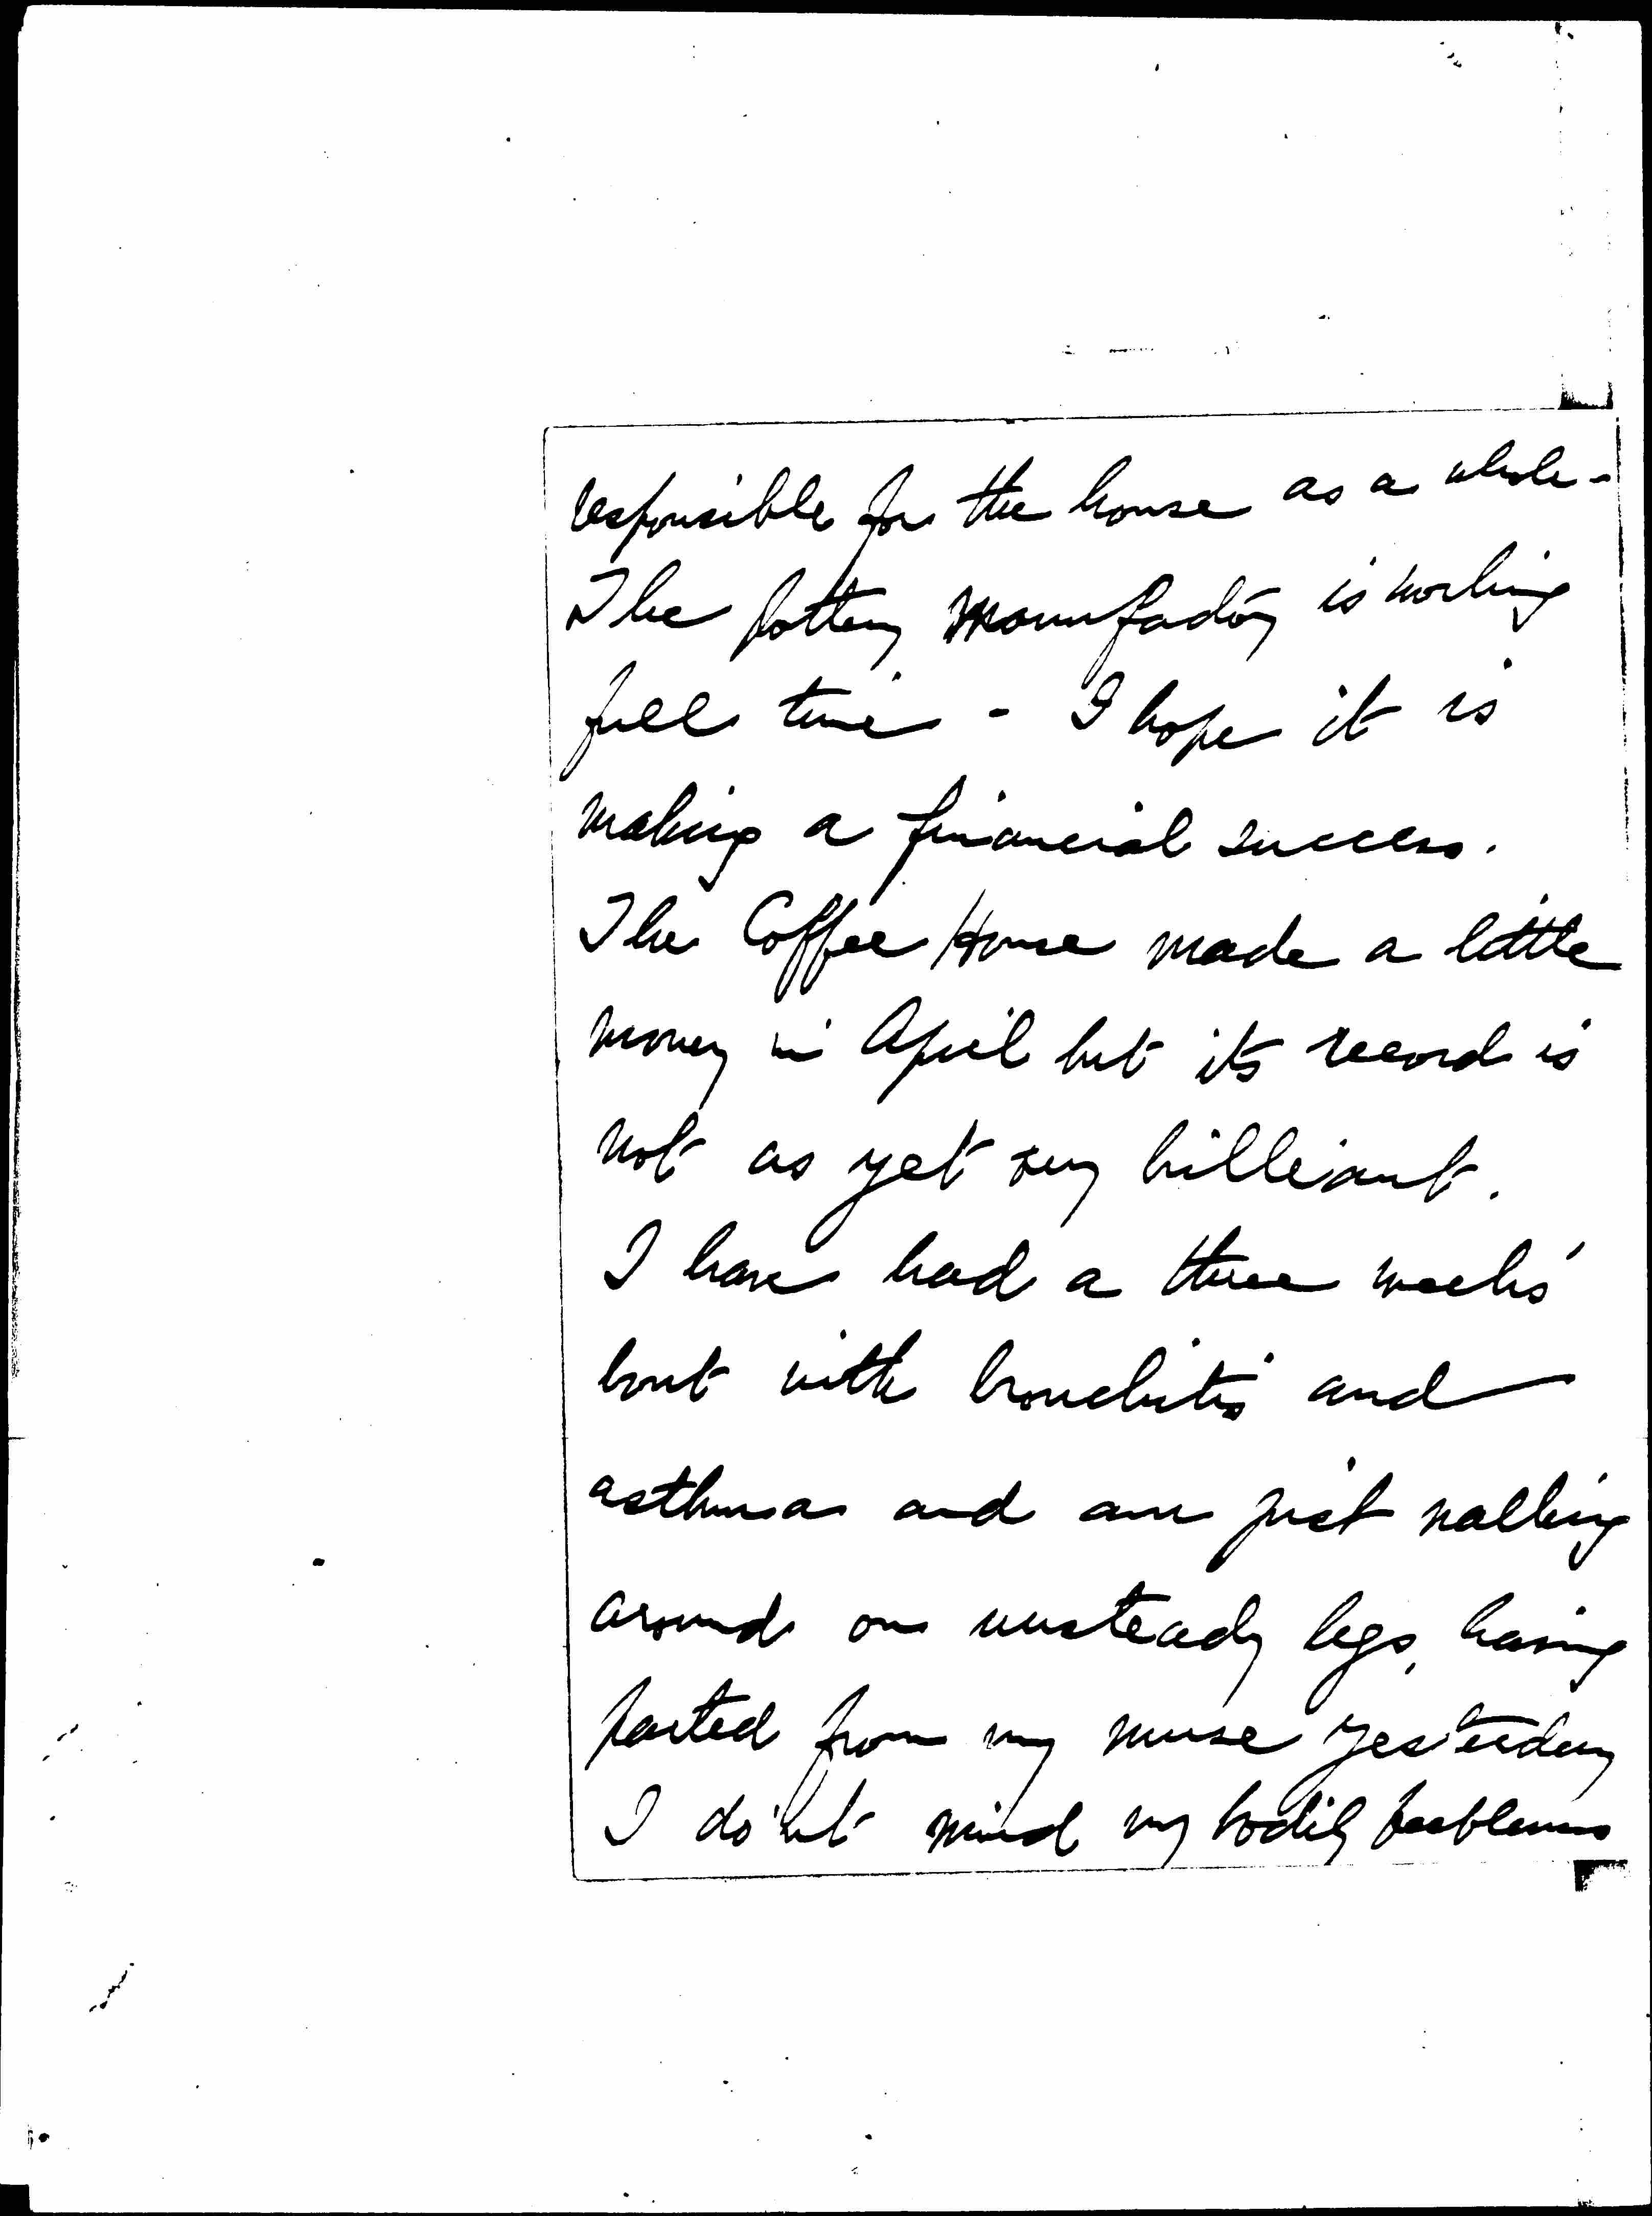 responsible for the house as a whole -
The pottery manufactory is working
full time - I hope it is
making a financial success.
The Coffee House made a little
money in April but its record is
not as yet very brilliant.
I have had a three weeks'
bout with bronchitis and
asthma and am just walking
around on unsteady legs, having
parted from my nurse yesterday
I do'nt mind my bodily feebleness